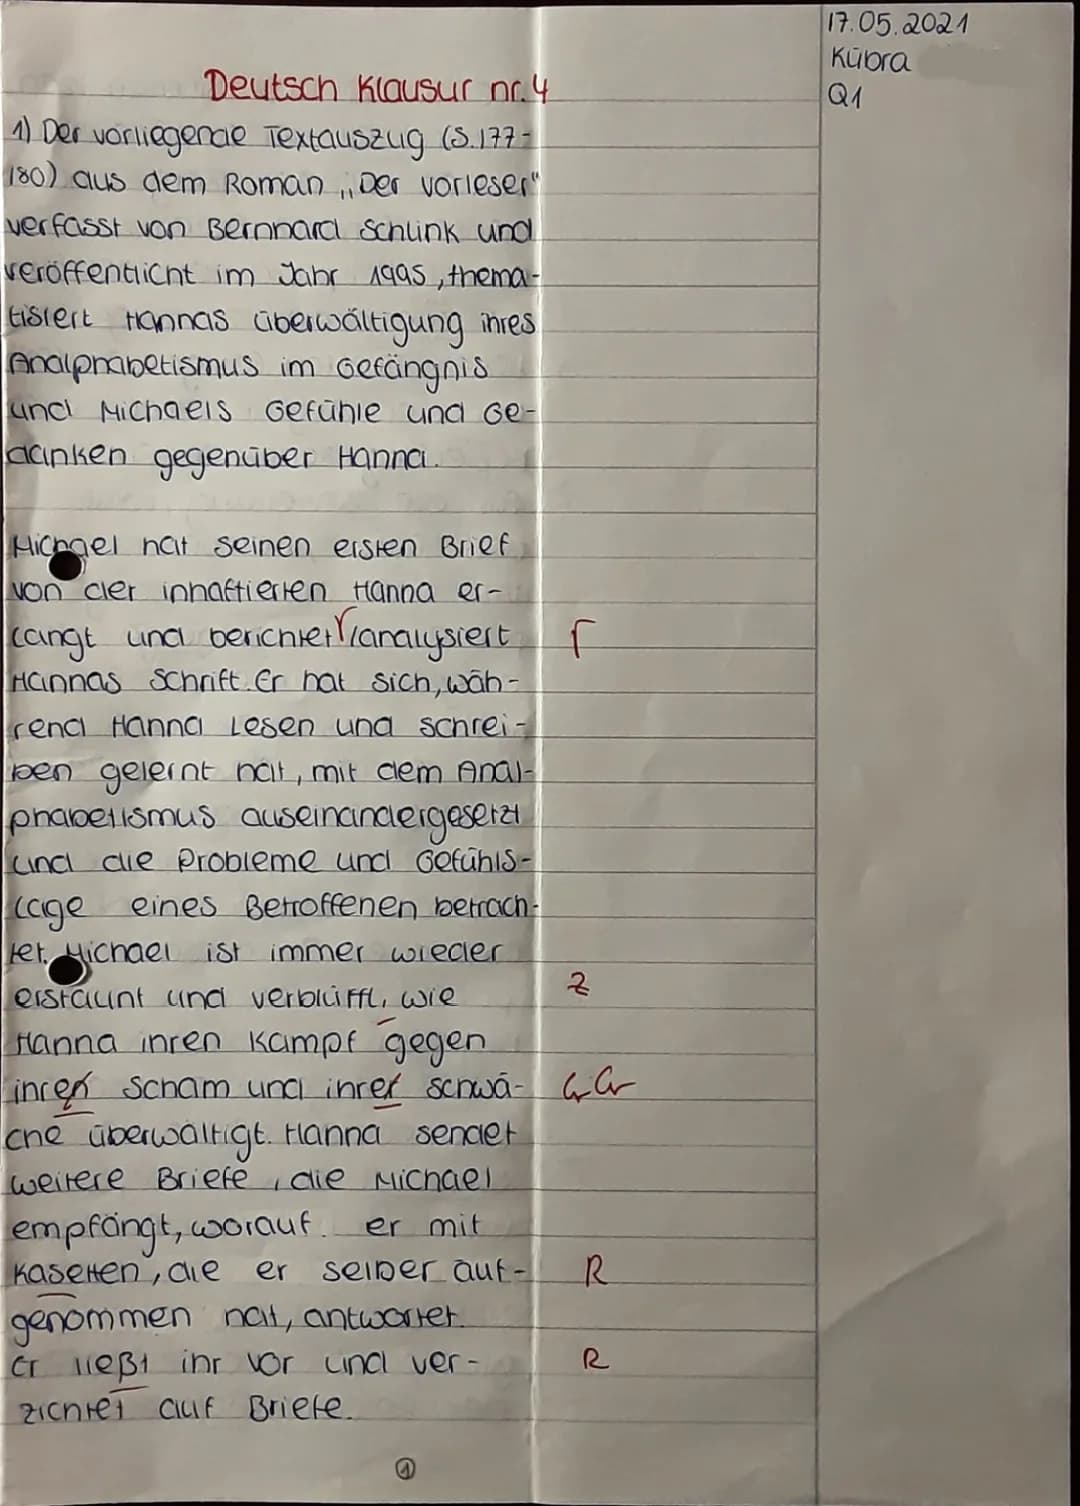 17.05.2021
Kübra
Q1
Deutsch Klausur nr. 4
1) Der vorliegende Textauszug (S. 177-
180) aus dem Roman „Der Vorleser"
verfasst von Bernhard Schlink und
veröffentlicht im Jahr 1995, thema-
tisiert Hannas überwältigung ihres
Analphabetismus im Gefängnis
und Michaels Gefühle und Ge-
danken gegenüber Hanna.
Michael hat seinen ersten Brief
von der inhaftierten Hanna er-
langt und berichtet/analysiert
Γ
Hannas Schrift. Er hat sich, wäh-
rend Hanna Lesen und schrei-
ben gelernt hat, mit dem Anal-
phabetismus auseinandergesetzt
und die Probleme und Gefühls-
lage eines Betroffenen betrach-
tet. Michael ist immer wieder
erstaunt und verblüfft, wie
Z
Hanna ihren Kampf gegen
ihren Scham und ihrer Schwä-
Gr Gr
che überwältigt. Hanna sendet
weitere Briefe, die Michael
empfängt, worauf er mit
Kasetten, die er selber auf-
R
genommen hat, antwortet.
Er ließt ihr vor und ver-
R
zichtet auf Briefe.
1